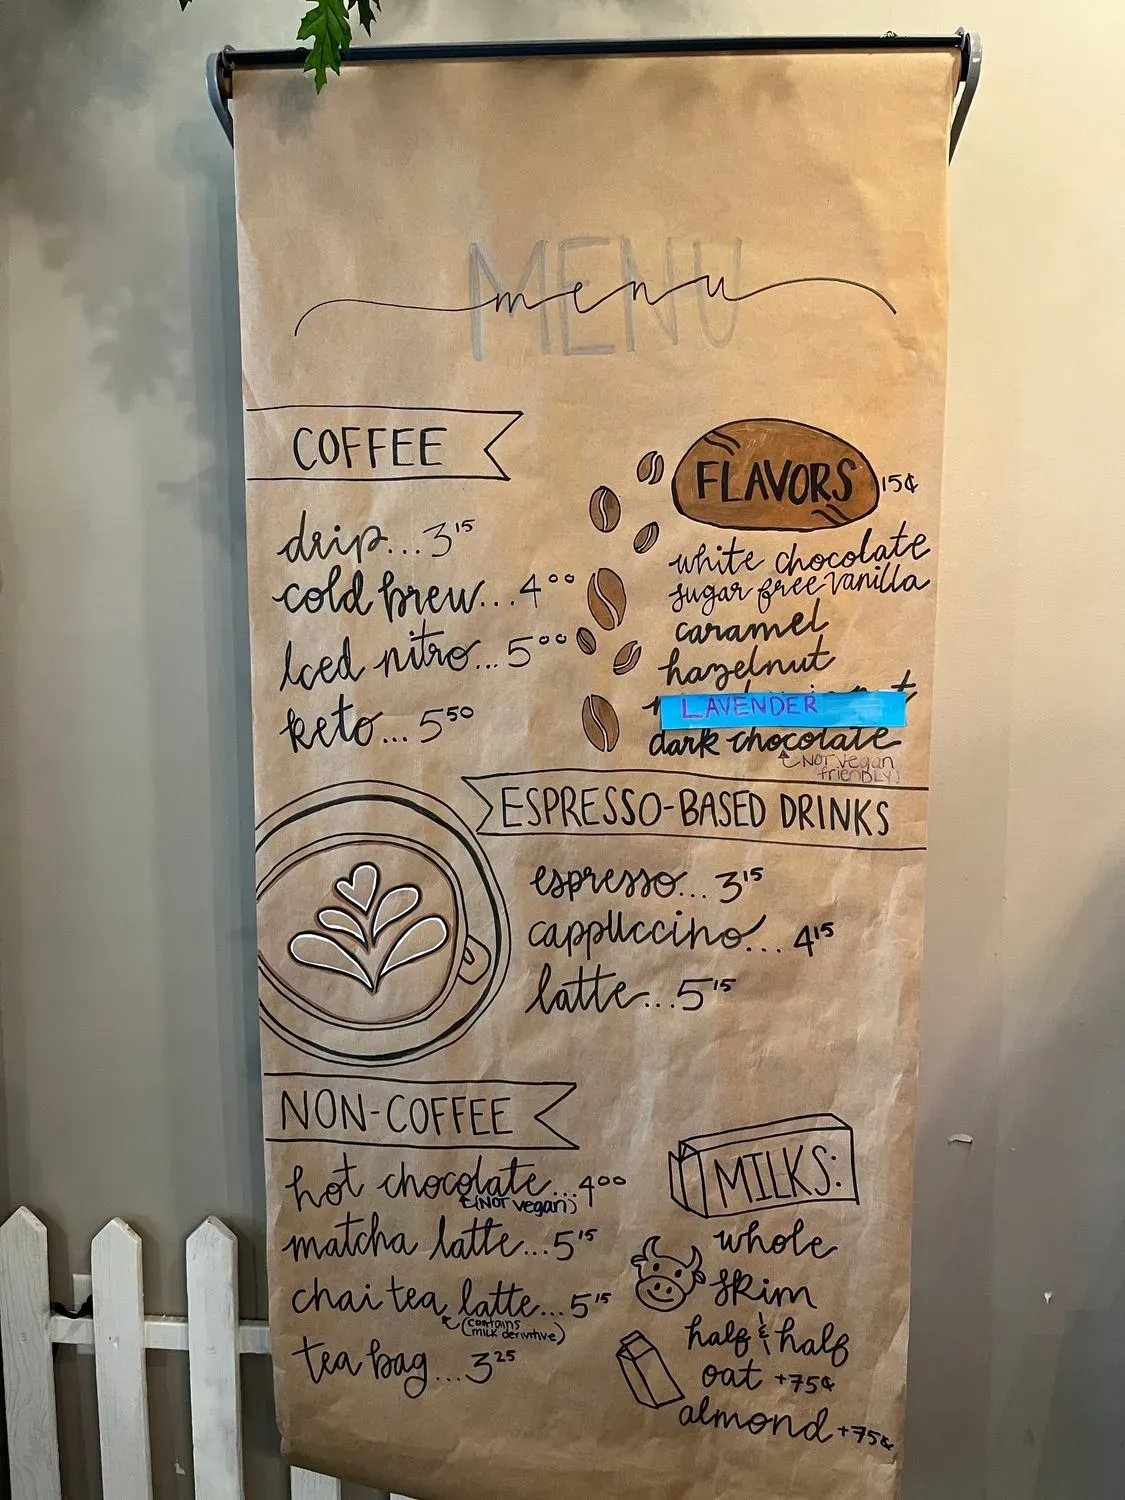 MENU
menu
COFFEE
drip...3¹⁵
cold brew...4⁰⁰
Iced nitro...5⁰⁰
keto...5⁵⁰
FLAVORS 15¢
white chocolate
sugar free vanilla
caramel
hazelnut
LAVENDER
dark chocolate
NOT vegan
friENDLY!
ESPRESSO-BASED DRINKS
espresso...3¹⁵
cappuccino...4¹⁵
latte...5¹⁵
NON-COFFEE
hot chocolate...4⁰⁰
(NOT vegan)
matcha latte...5¹⁵
chai tea latte...5¹⁵
(contains
milk derivitive)
tea bag...3²⁵
MILKS:
whole
skim
half & half
oat +75¢
almond +75¢